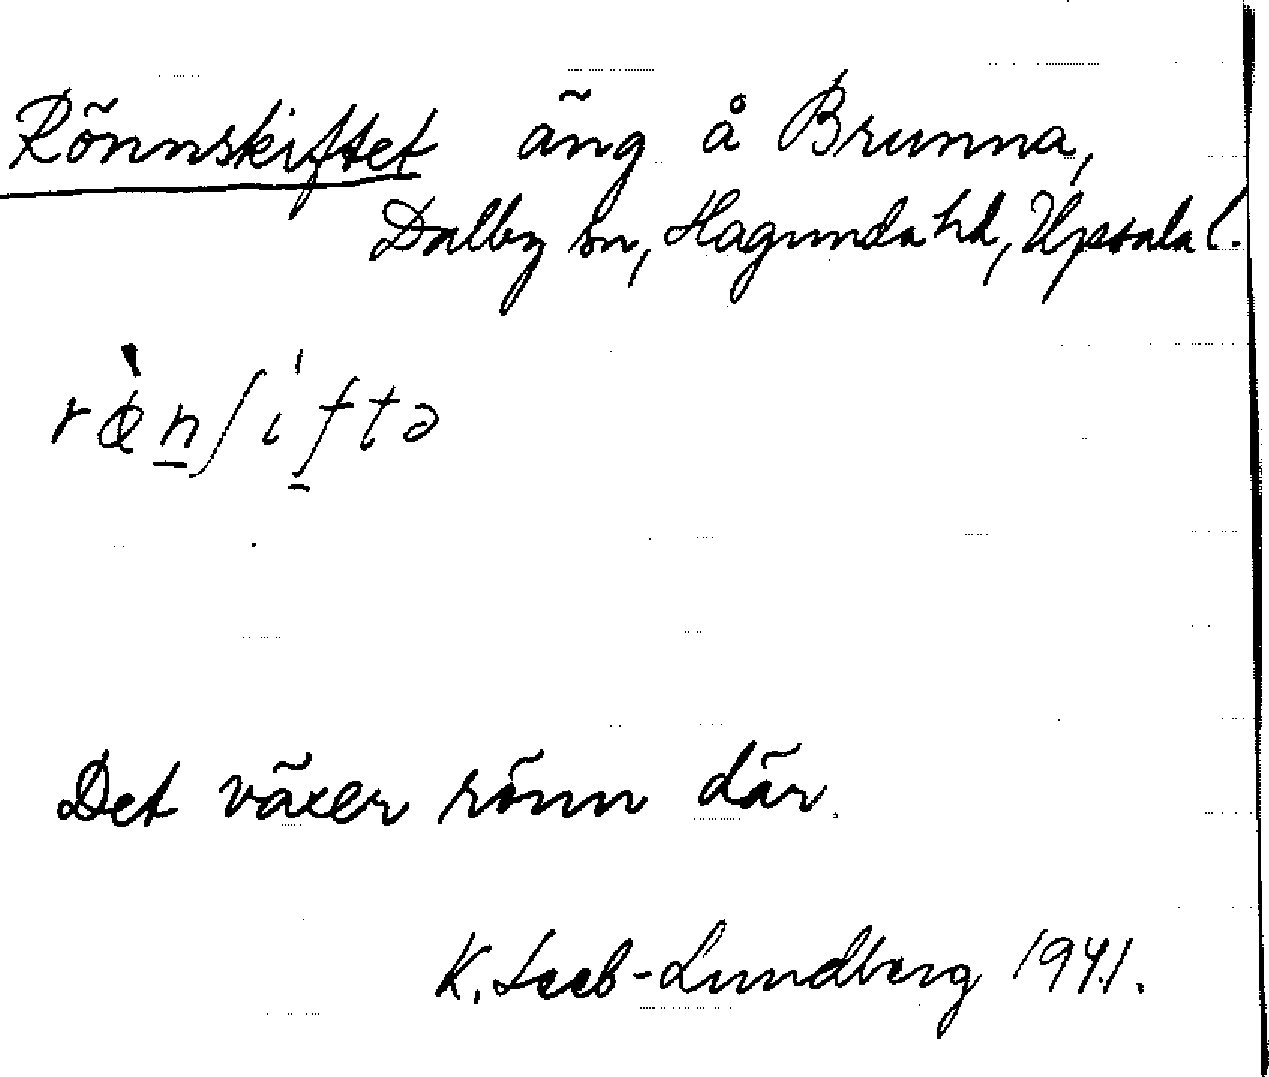 Rönnskiftet äng å Brunna,
Dalby sn, Hagunda hd, Upsala l.
rœ̀n̠ʃiˈf̠tə
Det växer rönn där.
K. Leeb-Lundberg 1941.